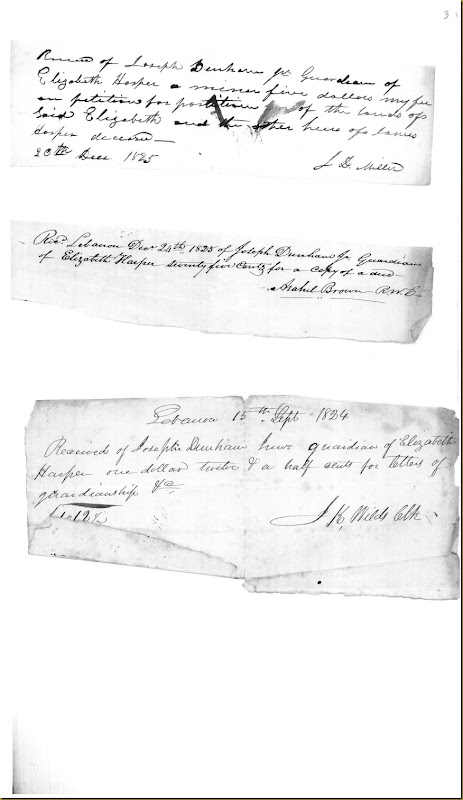 3
Receivd of Joseph Dunham Jr Guardian of
Elizabeth Harper a minor five dollars my fee
on petition for partition of the lands of
Said Elizabeth and the other heirs of James
Harper deceased—
20th Decr 1825
J D. Miller
Recd Lebanon Decr 24th 1825 of Joseph Dunham Jr Guardian
of Elizabeth Harper seventy five Cents for a copy of a deed
Asahel Brown R.W.C.
Lebanon 15th Sept 1824
Received of Joseph Dunham Junr guardian of Elizabeth
Harper one dollar twelve & a half cents for letters of
guardianship &c
$1.12½
J. K. Wilds Clk